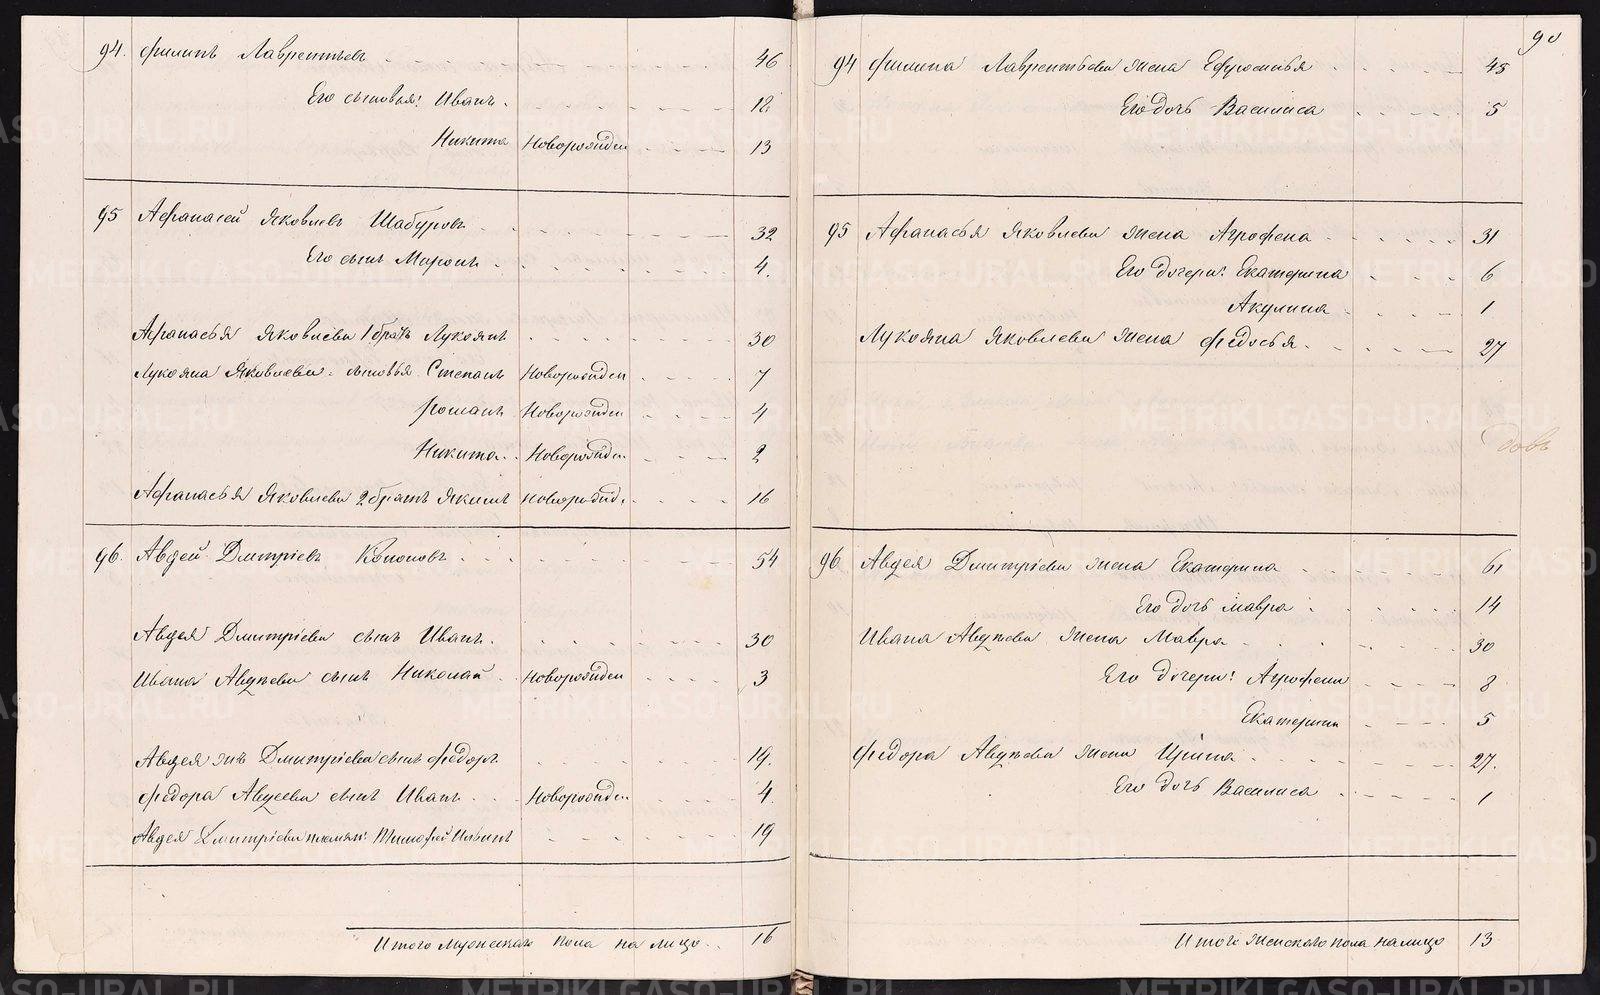 94. Филипъ Лаврентьевъ 46
Его сыновья: Иванъ. 12
Никита Новорожден 13
95 Афанасей Яковлевъ Шабуровъ 32
Его сынъ Миронъ 4.
Афанасья Яковлева 1 братъ Лукоянъ 30
Лукояна Яковлева: сыновья Степанъ Новорожден 7
Романъ Новорожден 4
Никита Новорожден 2
Афанасья Яковлева 2 братъ Якимъ Новорожд. 16
96. Авдей Дмитріевъ Кононовъ 54
Авдея Дмитріева сынъ Иванъ. 30
Ивана Авдѣева сынъ Николай Новорожден 3
Авдея жъ Дмитріева сынъ Федоръ 19.
Федора Авдеева сынъ Иванъ Новорожден 4.
Авдея Дмитріева племян: Тимофей Ильинъ 19
Итого мужескаго пола на лицо 16
90
94 Филипа Лаврентьева жена Ефросинья 45
Его дочь Василиса 5
95 Афанасья Яковлева жена Агрофена 31
Его дочери: Екатерина 6
Акулина 1
Лукояна Яковлева жена Федосья 27
96 Авдея Дмитріева жена Екатерина 61
Его дочь Мавра 14
Ивана Авдѣева жена Мавра 30
Его дочери: Агрофена 8
Екатерина 5
Федора Авдѣева жена Ирина 27.
Его дочь Василиса 1
Итого женского пола налицо 13
METRIKI.GASO-URAL.RU